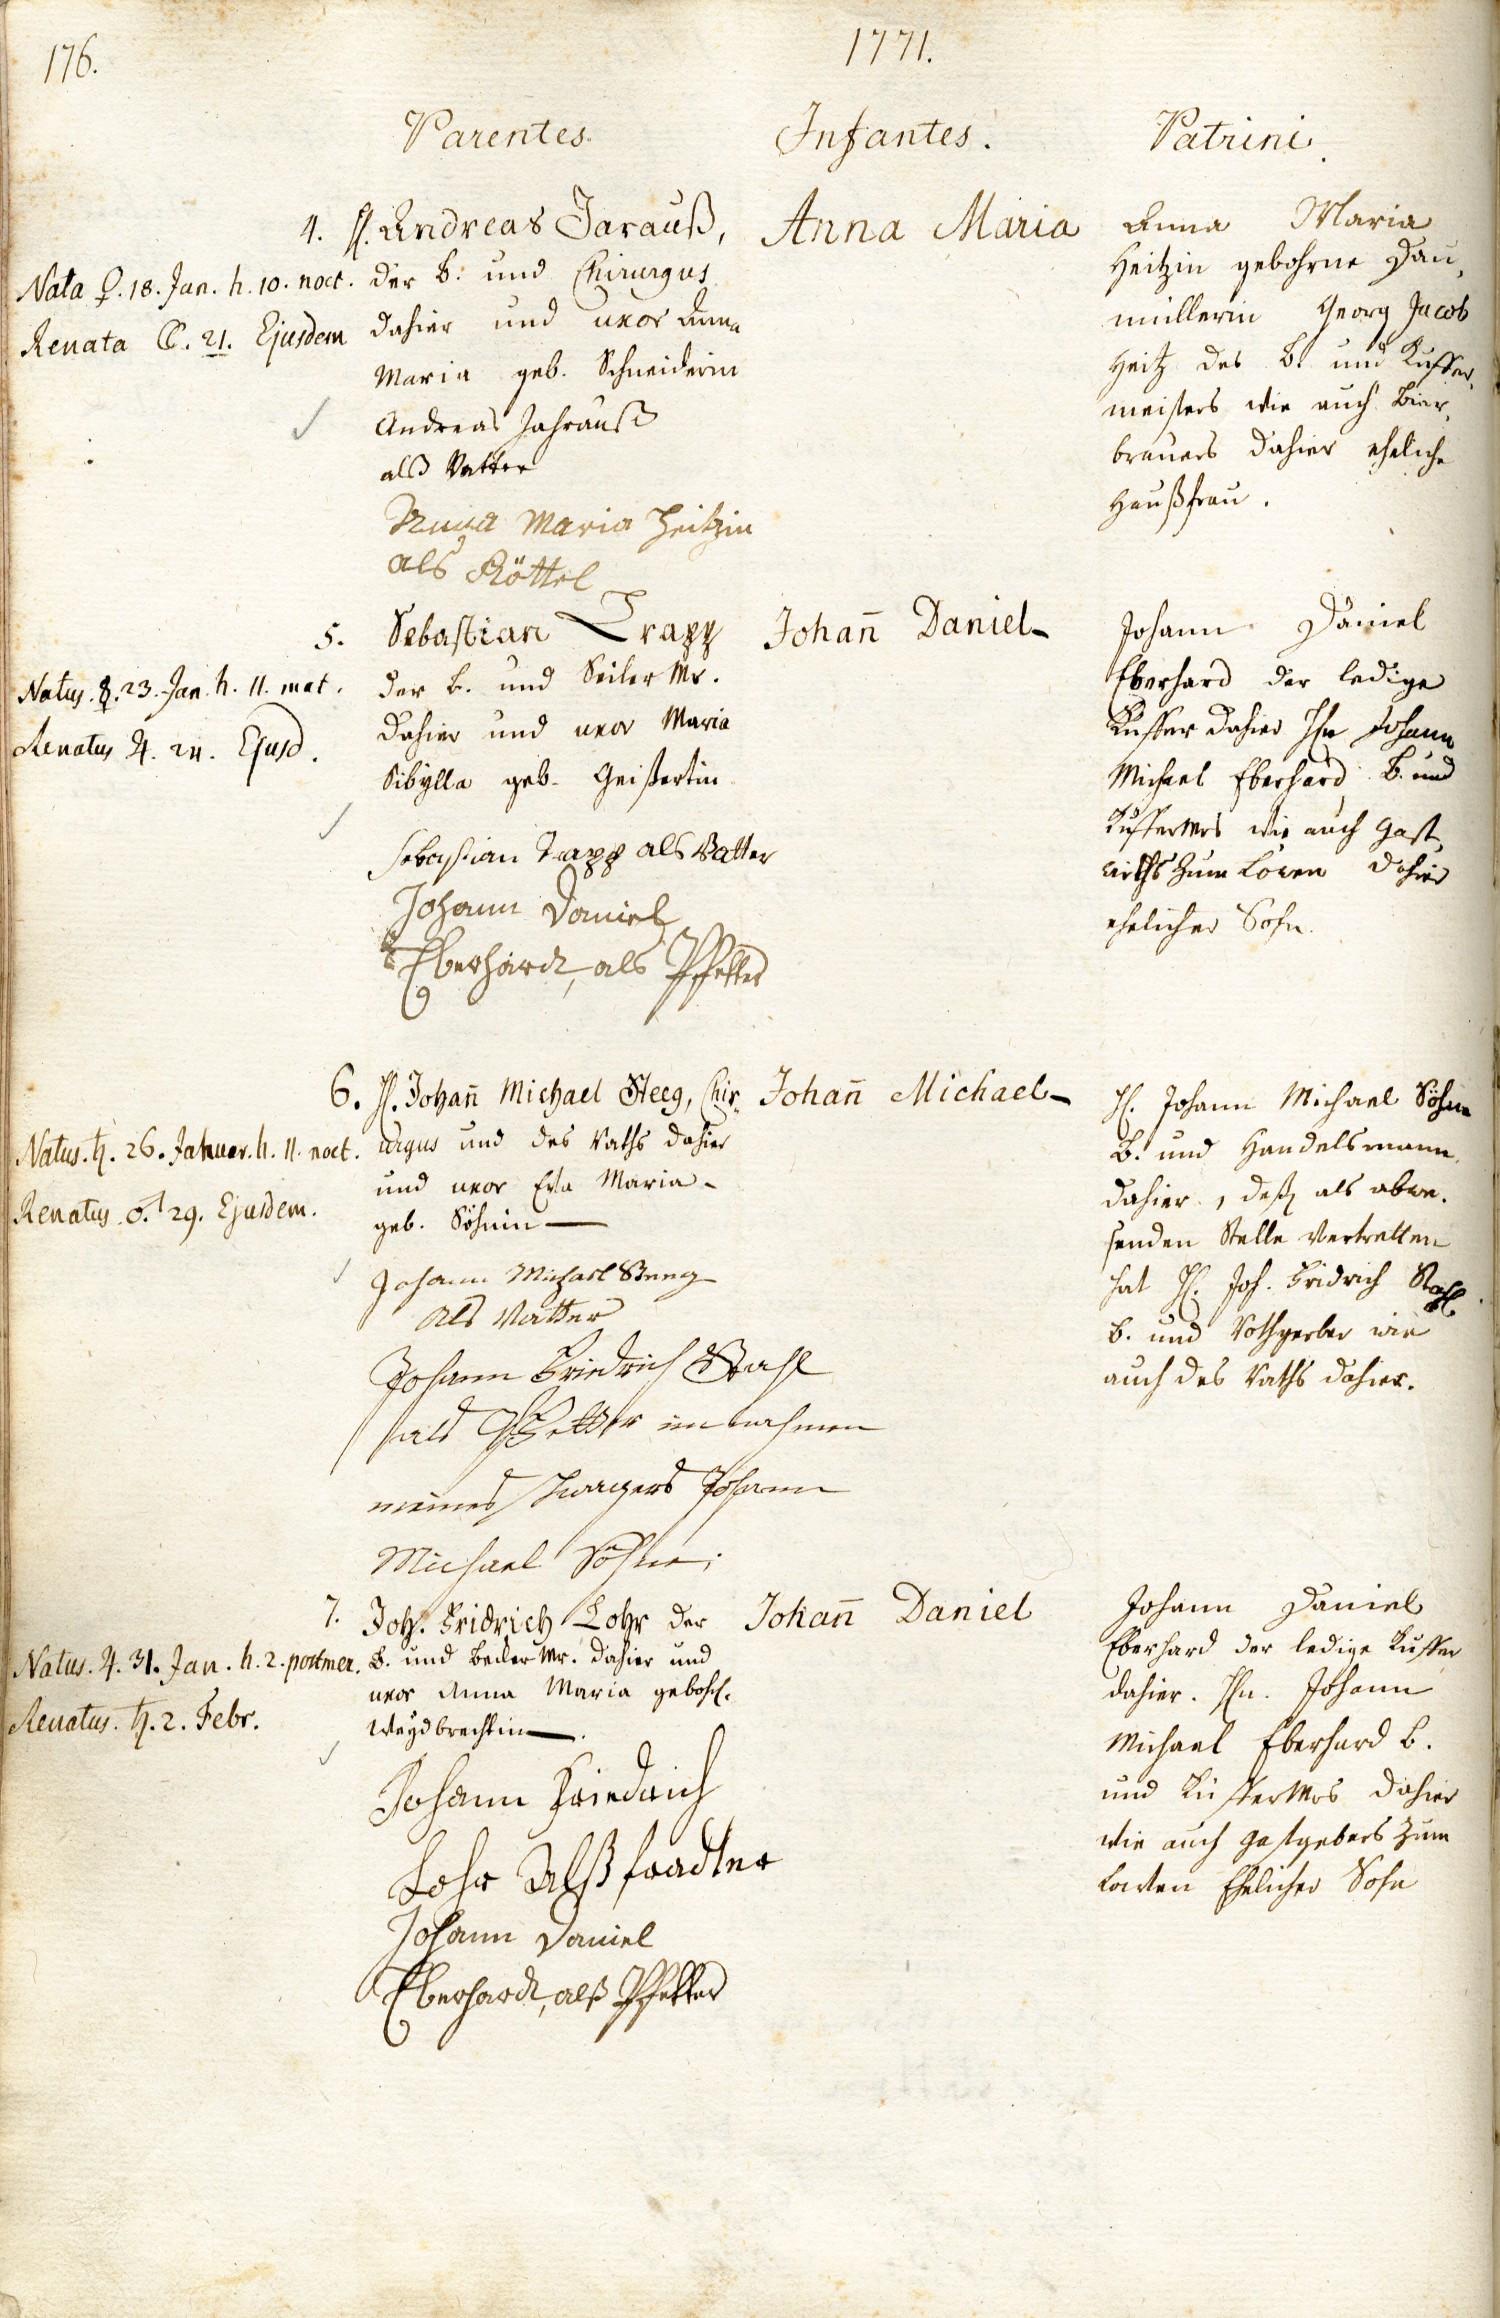 176.
1771.
Parentes.
Infantes.
Patrini.
4. H. Andreas Jarauß,
der B. und Chirurgus
dahier und uxor Anna
Maria geb. Schneiderin
Nata ♀. 18. Jan. h. 10. noct.
Renata ☾. 21. Ejusdem
Andreas Jahrauß
alß Vatter
Anna Maria Heitzin
als Göttel
Anna Maria
Anna Maria
Heitzin gebohrne Dau,
müllerin Georg Jacob
Heitz des B. und Kuffer,
meisters wie auch Bier,
brauers dahier eheliche
Haußfrau.
5. Sebastian Trapp
der B. und Seiler Mr.
dahier und uxor Maria
Sibylla geb. Geißertin
Natus. ☿. 23. Jan. h. 11. mat.
Renatus ♃. 24. Ejusd.
Sebastian Trapp als Vatter
Johann Daniel
Eberhardt, als Pfetter
Johan̅ Daniel
Johann Daniel
Eberhard der ledige
Kuffer dahier Hn Johann
Michael Eberhard B. und
Kuffermrs wie auch Gast,
wirths zum Löwen dahier
ehelicher Sohn.
6. H. Johan̅ Michael Steeg, Chir,
urgus und des Raths dahier
und uxor Eva Maria
geb. Söhnin
Natus. ♄. 26. Januar. h. 11. noct.
Renatus. ♂. 29. Ejusdem.
Johann Michael Steeg
als Vatter
Johann Friedrich Stahl
als Pfetter im nahmen
meines Schwagers Johann
Michael Söhne.
Johan̅ Michael
H. Johann Michael Söhne
B. und Handelsmann
dahier, deß als abwe,
senden Stelle vertretten
hat H. Joh. Fridrich Stahl
B. und Rothgerber wie
auch des Raths dahier.
7. Joh. Fridrich Lohr der
B. und Becker Mr. dahier und
uxor Anna Maria gebohr.
Weydbrechtin.
Natus. ♃. 31. Jan. h. 2. postmer.
Renatus. ♄. 2. Febr.
Johann Friedrich
Lohr Alß
Johann Daniel
Eberhardt, alß Pfetter
Johan̅ Daniel
Johann Daniel
Eberhard der ledige Kuffer
dahier. Hn. Johann
Michael Eberhard B.
und Kuffermrs dahier
wie auch Gastgebers zum
Löwen Ehelicher Sohn